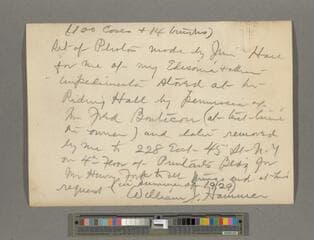 (100 Cases + 14 trunks)
Set of Photos made by Jim Hare
for me of my Edisonia + other
impedimenta stored at
Riding Hall by permission of
Mr Fred (at that time
owner) and later removed
by me to 228 East 45 St N.Y.
on 4th Floor of Printers Bldg for
Mr Henry Ford to see things and at his
request (in summer of 1929)
William J. Hammer